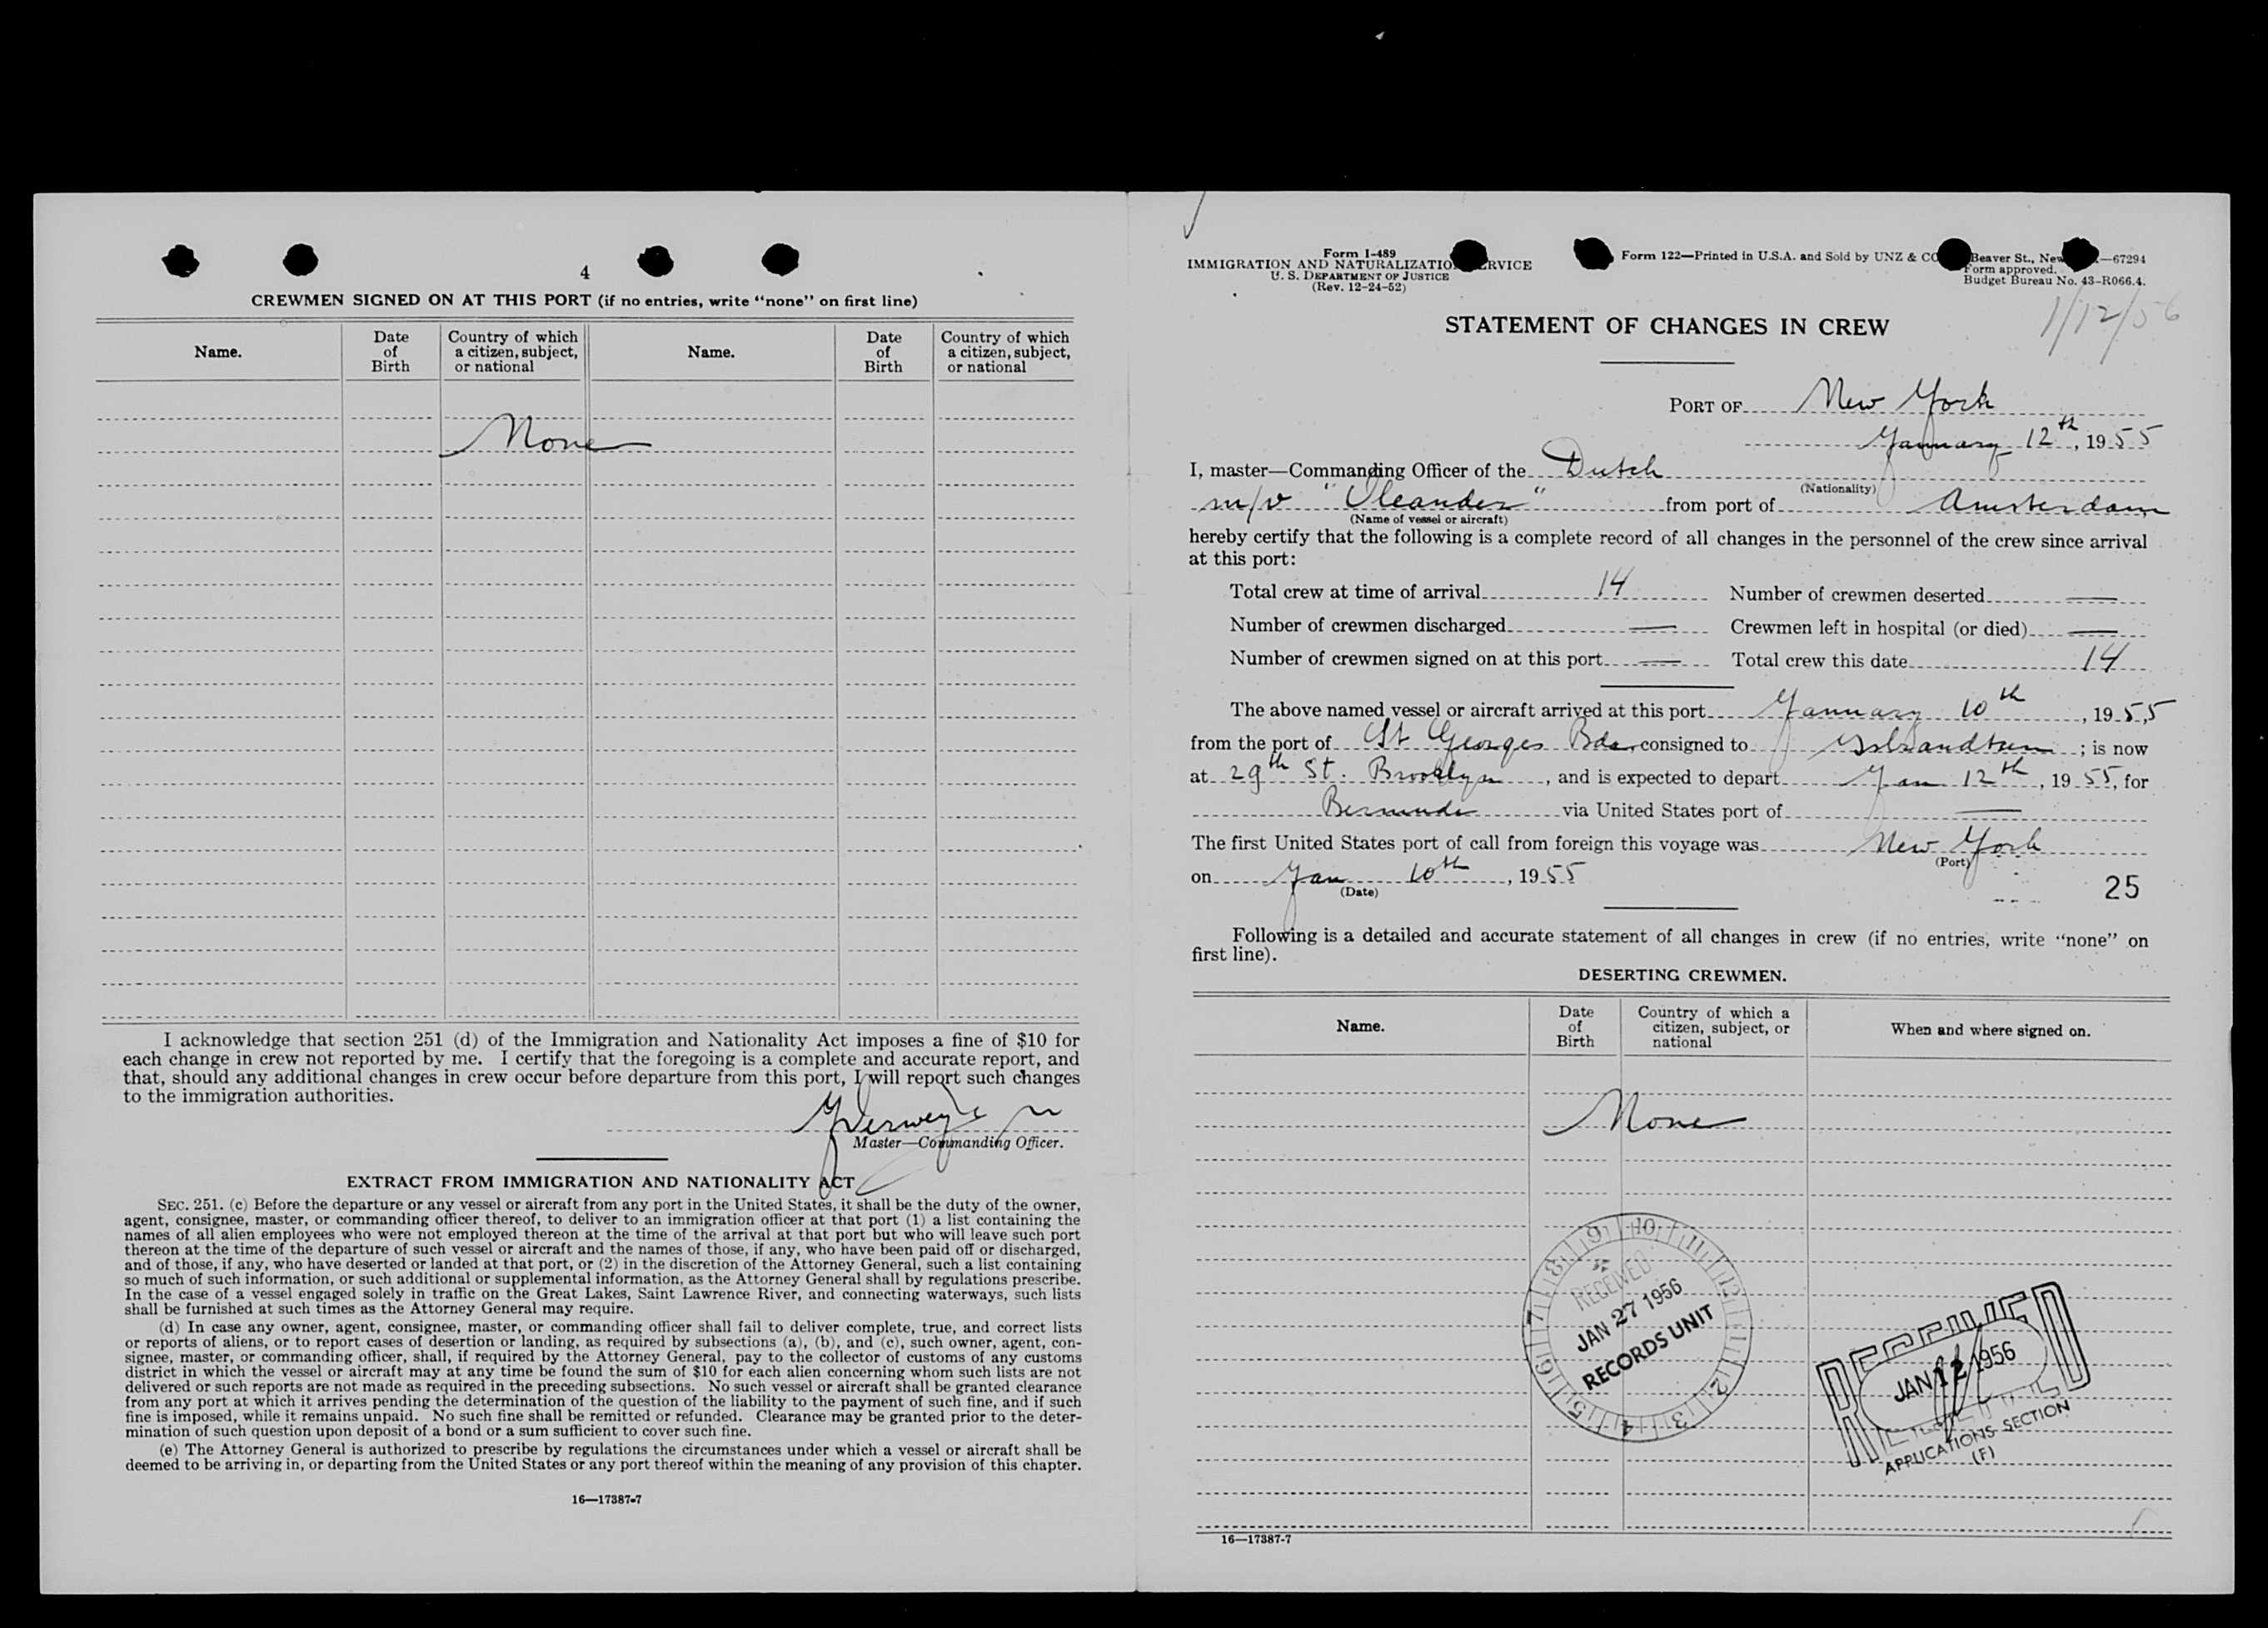 4
CREWMEN SIGNED ON AT THIS PORT (if no entries, write “none” on first line)
Name. Date of Birth Country of which a citizen, subject, or national Name. Date of Birth Country of which a citizen, subject, or national
None
I acknowledge that section 251 (d) of the Immigration and Nationality Act imposes a fine of $10 for
each change in crew not reported by me. I certify that the foregoing is a complete and accurate report, and
that, should any additional changes in crew occur before departure from this port, I will report such changes
to the immigration authorities.
Master—Commanding Officer.
EXTRACT FROM IMMIGRATION AND NATIONALITY ACT
SEC. 251. (c) Before the departure or any vessel or aircraft from any port in the United States, it shall be the duty of the owner,
agent, consignee, master, or commanding officer thereof, to deliver to an immigration officer at that port (1) a list containing the
names of all alien employees who were not employed thereon at the time of the arrival at that port but who will leave such port
thereon at the time of the departure of such vessel or aircraft and the names of those, if any, who have been paid off or discharged,
and of those, if any, who have deserted or landed at that port, or (2) in the discretion of the Attorney General, such a list containing
so much of such information, or such additional or supplemental information, as the Attorney General shall by regulations prescribe.
In the case of a vessel engaged solely in traffic on the Great Lakes, Saint Lawrence River, and connecting waterways, such lists
shall be furnished at such times as the Attorney General may require.
(d) In case any owner, agent, consignee, master, or commanding officer shall fail to deliver complete, true, and correct lists
or reports of aliens, or to report cases of desertion or landing, as required by subsections (a), (b), and (c), such owner, agent, con-
signee, master, or commanding officer, shall, if required by the Attorney General, pay to the collector of customs of any customs
district in which the vessel or aircraft may at any time be found the sum of $10 for each alien concerning whom such lists are not
delivered or such reports are not made as required in the preceding subsections. No such vessel or aircraft shall be granted clearance
from any port at which it arrives pending the determination of the question of the liability to the payment of such fine, and if such
fine is imposed, while it remains unpaid. No such fine shall be remitted or refunded. Clearance may be granted prior to the deter-
mination of such question upon deposit of a bond or a sum sufficient to cover such fine.
(e) The Attorney General is authorized to prescribe by regulations the circumstances under which a vessel or aircraft shall be
deemed to be arriving in, or departing from the United States or any port thereof within the meaning of any provision of this chapter.
16—17387-7
Form I-489
IMMIGRATION AND NATURALIZATIO RVICE
U. S. DEPARTMENT OF JUSTICE
(Rev. 12-24-52)
Form 122—Printed in U.S.A. and Sold by UNZ & CO Beaver St., New —67294
Form approved.
Budget Bureau No. 43-R066.4.
1/12/56
STATEMENT OF CHANGES IN CREW
PORT OF New York
January 12th, 1955
I, master—Commanding Officer of the Dutch
(Nationality)
m/v "Oleander" from port of Amsterdam
(Name of vessel or aircraft)
hereby certify that the following is a complete record of all changes in the personnel of the crew since arrival
at this port:
Total crew at time of arrival 14 Number of crewmen deserted —
Number of crewmen discharged — Crewmen left in hospital (or died) —
Number of crewmen signed on at this port — Total crew this date 14
The above named vessel or aircraft arrived at this port January 10th, 1955
from the port of St Georges Bda consigned to Isbrandtsen ; is now
at 29th St. Brooklyn, and is expected to depart Jan 12th, 1955, for
Bermuda via United States port of —
The first United States port of call from foreign this voyage was New York
(Port)
on Jan 10th, 1955
(Date)
25
Following is a detailed and accurate statement of all changes in crew (if no entries, write “none” on
first line).
DESERTING CREWMEN.
Name. Date of Birth Country of which a citizen, subject, or national When and where signed on.
None
9 10 11 12 1 2 3 4 5 6 7 8
RECEIVED
JAN 27 1956
RECORDS UNIT
RECEIVED
JAN 12 1956
APPLICATIONS SECTION
(F)
16—17387-7